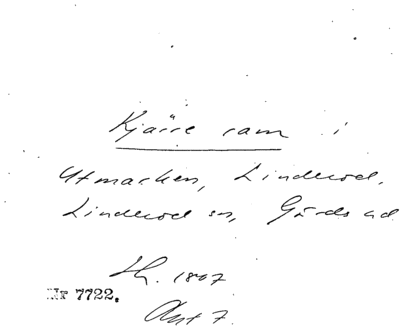 Kjärr sam i
Utmarken, Linderöd.
Linderöd sn, Gärds hd
Sk. 1807
Nr 7722.
Akt 7.